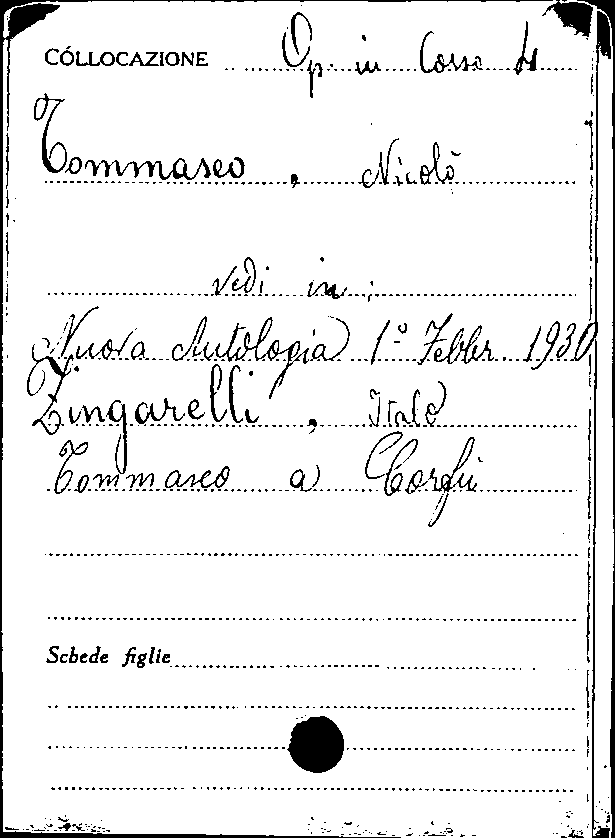 CÓLLOCAZIONE Op. in Corso
Tommaseo, Nicolò
vedi in:
Nuova Antologia 1º Febbr. 1930
Zingarelli, Italo
Tommaseo a Corfù
Schede figlie